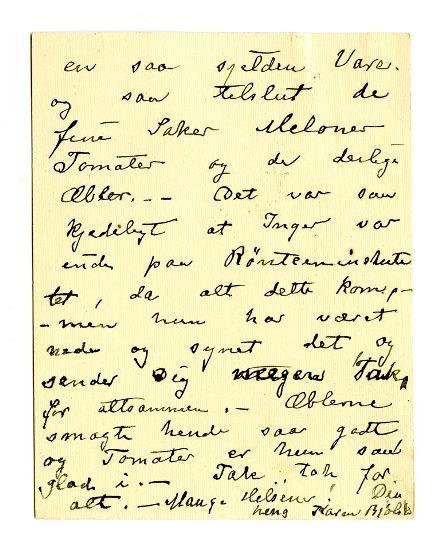 en saa sjelden Vare.
og saa tilslut de
fine Saker Meloner
Tomater og de deilige
Æbler. – – Det var saa
kjedeligt at Inger var
ende paa Røntgeninstitu
tet, da alt dette kom, –
– men hun har været
nede og synet det og
sender Dig megen Tak,
for altsammen. – Æblerne
smagte hende saa godt
og Tomater er hun saa
glad i. – Tak, tak for
alt. – Mange Hilsener, Din
heng Karen